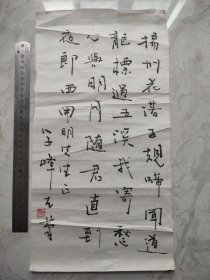 楊州花落子規啼聞道
龍標過五溪我寄愁
心與明月隨君直到
夜郎西開明先生正